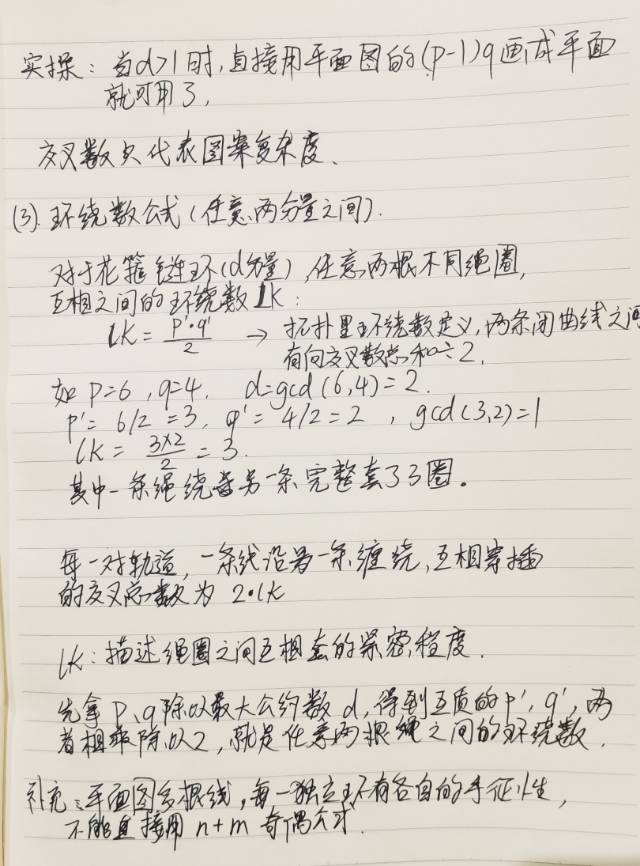 实操：当d>1时，直接用平面图的(p-1)q画成平面
就可用了，
交叉数只代表图案复杂度、
(3). 环绕数公式（任意两分量之间）.
对于花箍链环(d分量)，任意两根不同绳圈，
互相之间的环绕数LK：
LK = p'·q'/2 → 拓扑里环绕数定义，两条闭曲线之间
有向交叉数总和÷2，
如 P=6，q=4. d=gcd(6,4)=2.
P'= 6/2 =3，q'= 4/2=2 ，gcd(3,2)=1
LK= 3×2/2 = 3.
其中一条绳绕着另一条完整套了3圈。
每一对轨道，一条线沿另一条缠绕，互相穿插
的交叉总数为 2·LK
LK：描述绳圈之间互相套的紧密程度.
先拿 P、q除以最大公约数d，得到互质的p'，q'，两
者相乘除以2，就是任意两根绳之间的环绕数.
补充：平面图多根线，每一独立环有各自的手征性，
不能直接用 n+m 奇偶